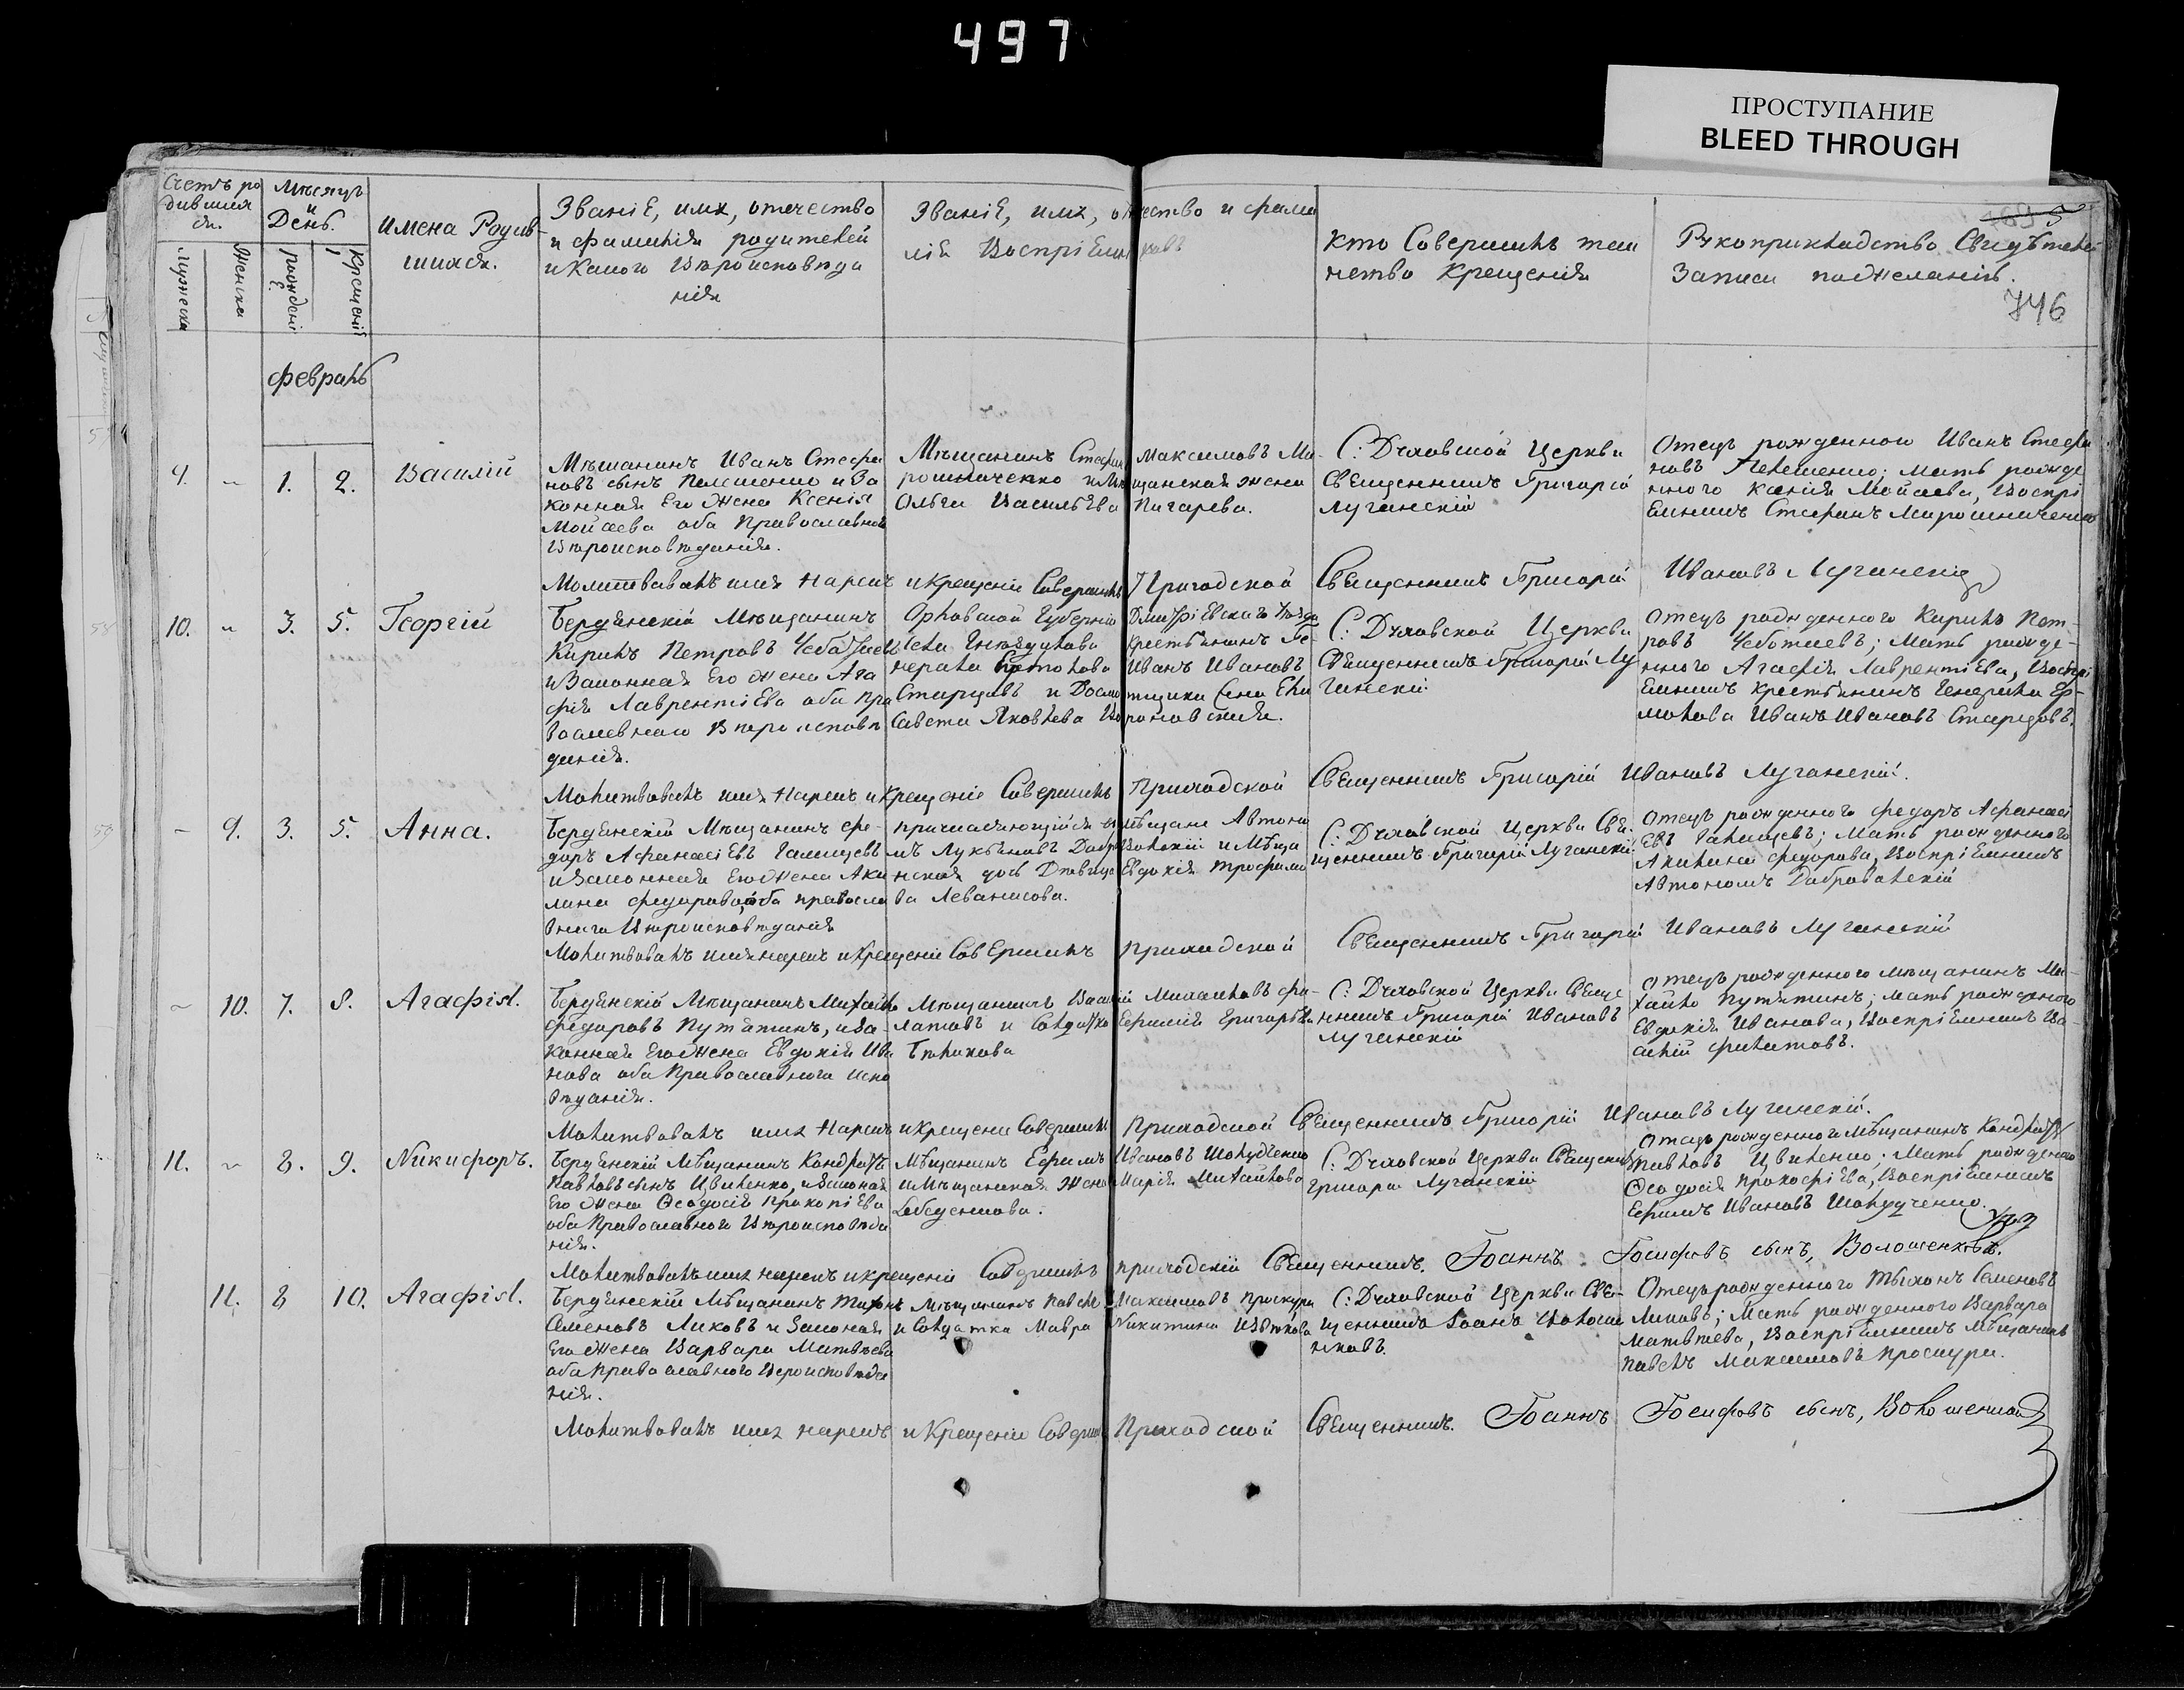 497
ПРОСТУПАНИЕ
BLEED THROUGH
Счетъ ро
дившихся
Мѣсяцъ
и
День.
Имена Родив-
шихся.
Званіе, имя, отечество
и фамилія родителей
и какого вѣроисповѣда
нія
Званіе, имя, отчество и фами
лія Воспріемниковъ
Кто Совершилъ таи
нство Крещенія
Рукоприкладство Свидѣтелей
Записи пожеланію.
746
Мужеска
Женска
рожденія
Крещенія
Февраль
9. 1. 2. Василій
Мѣщанинъ Иванъ Стефа
новъ сынъ и За
конная Его Жена Ксенія
Моисеева оба Православнаго
Вѣроисповѣданія.
Мѣщанинъ Стефанъ Максимовъ Ми-
рошниченко и Мѣщанская жена
Ольга Васильева Пигарева.
С: Духовской Церкви
Священникъ Григорій
Луганскій
Отецъ рожденного Иванъ Стефа
новъ; Мать рожде
нного Ксенія Моисеева, Воспрі
емникъ Стефанъ Мирошниченко
Молитвовалъ имя Нарекъ и Крещеніе Совершилъ Приходской Священникъ Григорій Ивановъ Луганскій
10. 3. 5. Георгій
Бердянскій Мѣщанинъ
Кирилъ Петровъ
и Законная Его Жена Ага
фія Лаврентіева оба Пра
вославнаго Вѣроисповѣ
данія.
Орловской Губерніи Дмитріевскаго
крестьянинъ Ге-
нерала Иванъ Ивановъ
Старцовъ и Ели
савета Яковлева
С: Духовской Церкви
Священникъ Григорій Лу
ганскій
Отецъ рожденного Кирилъ Пет-
ровъ; Мать рожде-
нного Агафія Лаврентіева, Воспрі
емникъ крестьянинъ Генерала Ер-
молова Иванъ Ивановъ Старцовъ.
Молитвовалъ имя Нарекъ и Крещеніе Совершилъ Приходской Священникъ Григорій Ивановъ Луганскій.
9. 3. 5. Анна.
Бердянскій Мѣщанинъ Фе-
доръ Афанасіевъ
и Законная Его Жена Аки
лина Федорова, оба правосла
внаго Вѣроисповѣданія
Причисляющійся въ мѣщане Автоно
мъ Лукьяновъ и Мѣща
нская дочь Дѣвица Евдокія Трофимо
ва Леванисова.
С: Духовской Церкви Свя-
щенникъ Григорій Луганскій.
Отецъ рожденного Федоръ Афанасі
евъ; Мать рожденного
Акилина Федорова, Воспріемникъ
Автономъ
Молитвовалъ имя нарекъ и Крещеніе Совершилъ приходской Священникъ Григорій Ивановъ Луганскій
10. 7. 8. Агафія.
Бердянскій Мѣщанинъ Михайло
Федоровъ Путятинъ, и За-
конная Его Жена Евдокія Ива
нова оба Православного Испо
вѣданія.
Мѣщанинъ Василій Михайловъ Фи-
латовъ и Солдатка Ефимія Григорьева
Бѣликова
С: Духовской Церкви Свяще
нникъ Григорій Ивановъ
Луганскій
Отецъ рожденного мѣщанинъ Ми-
хайло Путятинъ; мать рожденного
Евдокія Иванова, Воспріемникъ Ва-
силій Филатовъ.
Молитвовалъ имя Нарекъ и Крещеніе Совершилъ Приходской Священникъ Григорій Ивановъ Луганскій.
11. 8. 9. Никифоръ.
Бердянскій Мѣщанинъ Кондратъ
Павловъ сынъ Цвиленко, и Законная
Его Жена Ѳеодосія Прокопіева
оба Православного Вѣроисповѣда
нія.
Мѣщанинъ Ефимъ Ивановъ
и Мѣщанская Жена Марія Михайлова
Лебеденкова.
С: Духовской Церкви Священникъ
Григорій Луганскій
Отецъ рожденного Мѣщанинъ Кондратъ
Павловъ Цвиленко; Мать рожденного
Ѳеодосія Прокофіева, Воспріемникъ
Ефимъ Ивановъ
Молитвовалъ имя нарекъ и крещеніе Совершилъ приходскій Священникъ Іоаннъ Іосифовъ сынъ, Волошенковъ.
11. 8 10. Агафія.
Бердянскій Мѣщанинъ Тихонъ
Семеновъ Ликовъ и Законная
Его Жена Варвара Матвѣева
оба Православного Вѣроисповѣда
нія.
Мѣщанинъ Павелъ Максимовъ Проскура
и Солдатка Мавра Никитина Цвѣткова
С: Духовской Церкви Свя-
щенникъ Іоанъ Волоше
нковъ.
Отецъ рожденного Тихонъ Семеновъ
Ликовъ; Мать рожденного Варвара
Матвѣева, Воспріемникъ Мѣщанинъ
Павелъ Максимовъ Проскура.
Молитвовалъ имя нарекъ и Крещеніе Совершилъ Приходской Священникъ Іоаннъ Іосифовъ сынъ, Волошенковъ